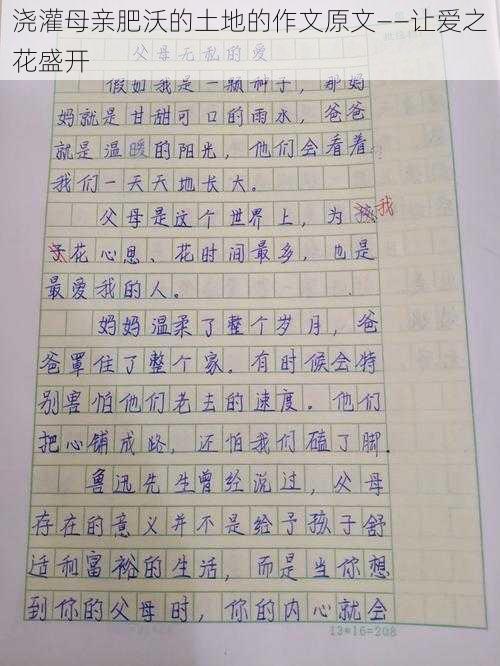 浇灌母亲肥沃的土地的作文原文——让爱之
花盛开
父母无私的爱
假如我是一颗种子，那妈
妈就是甘甜可口的雨水，爸爸
就是温暖的阳光，他们会看着
我们一天天地长大。
父母是这个世界上，为孩我
子花心思、花时间最多，也是
最爱我的人。
妈妈温柔了整个岁月，爸
爸罩住了整个家。有时候会特
别害怕他们老去的速度。他们
把心铺成路，还怕我们磕了脚。
鲁迅先生曾经说过，父母
存在的意义并不是给予孩子舒
适和富裕的生活，而是当你想
到你的父母时，你的内心就会
13*16=208